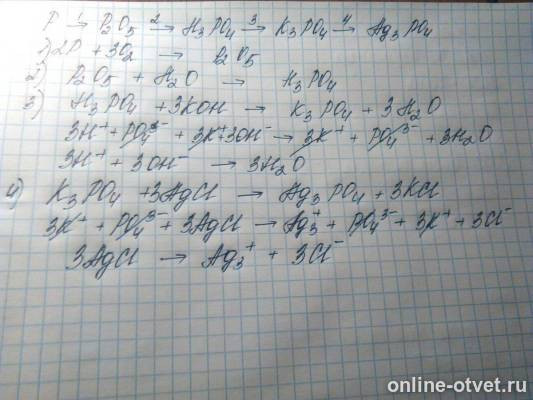 P 1→ P₂O₅ 2→ H₃PO₄ 3→ K₃PO₄ 4→ Ag₃PO₄
1) 2P + 3O₂ → P₂O₅
2) P₂O₅ + H₂O → H₃PO₄
3) H₃PO₄ + 3KOH → K₃PO₄ + 3H₂O
3H⁺ + PO₄³⁻ + 3K⁺ + 3OH⁻ → 3K⁺ + PO₄³⁻ + 3H₂O
3H⁺ + 3OH⁻ → 3H₂O
4) K₃PO₄ + 3AgCl → Ag₃PO₄ + 3KCl
3K⁺ + PO₄³⁻ + 3AgCl → Ag₃⁺ + PO₄³⁻ + 3K⁺ + 3Cl⁻
3AgCl → Ag₃⁺ + 3Cl⁻
online-otvet.ru